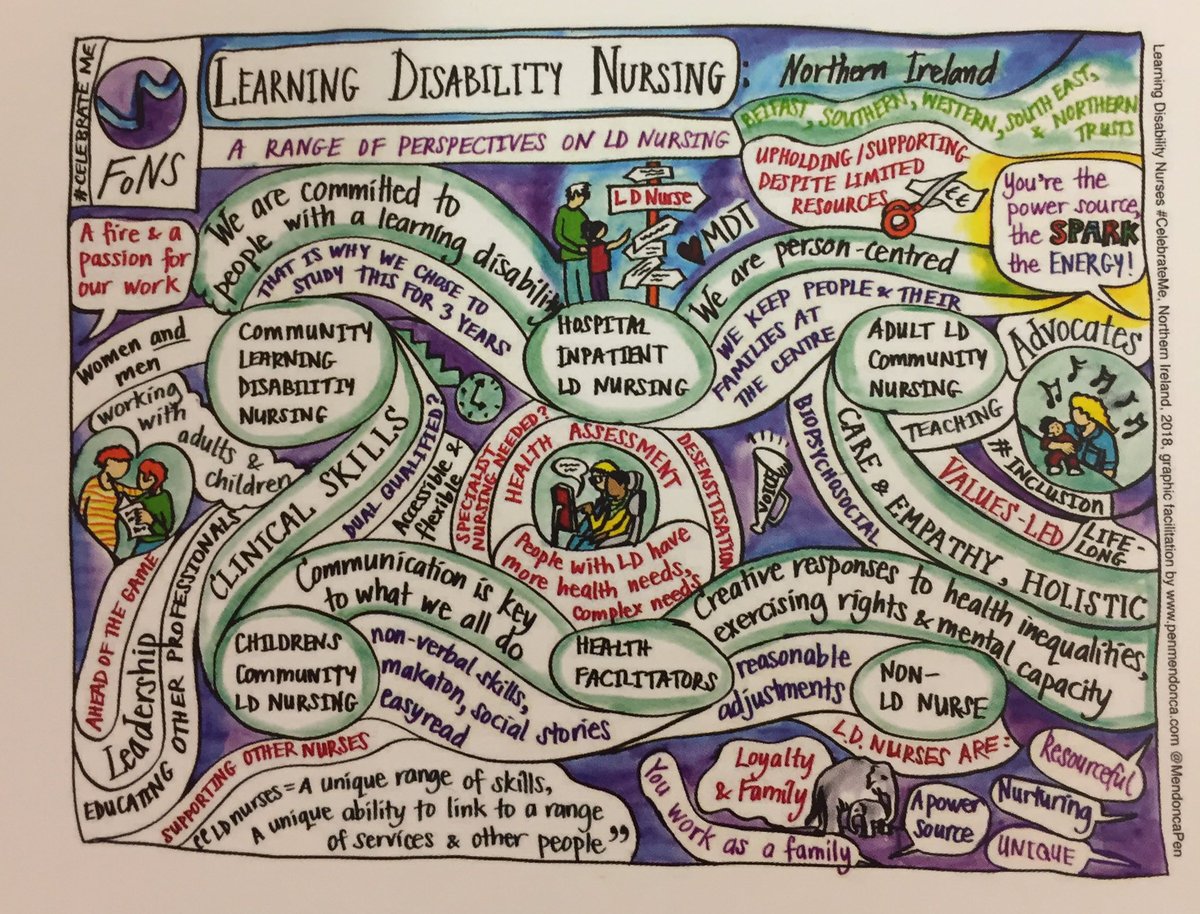 #CELEBRATE ME
FoNS
LEARNING DISABILITY NURSING:
Northern Ireland
A RANGE OF PERSPECTIVES ON LD NURSING
BELFAST, SOUTHERN, WESTERN, SOUTH EAST,
& NORTHERN
TRUSTS
UPHOLDING/SUPPORTING
DESPITE LIMITED
RESOURCES
€€
You're the
power source,
the SPARK
the ENERGY!
A fire & a
passion for
our work
We are committed to
people with a learning disability
THAT IS WHY WE CHOSE TO
STUDY THIS FOR 3 YEARS
LD Nurse
MDT
We are person-centred
WE KEEP PEOPLE & THEIR
FAMILIES AT
THE CENTRE
Women and
men
working
with
adults &
children
COMMUNITY
LEARNING
DISABILITIY
NURSING
HOSPITAL
INPATIENT
LD NURSING
ADULT LD
COMMUNITY
NURSING
Advocates
TEACHING
#INCLUSION
VALUES-LED
LIFE-
LONG
CARE & EMPATHY, HOLISTIC
BIOPSYCHOSOCIAL
VOICE
CLINICAL SKILLS
DUAL QUALIFIED?
Accessible &
flexible
SPECIALIST
NURSING NEEDED?
HEALTH ASSESSMENT
DESENSITISATION
People with LD have
more health needs,
complex needs
Communication is key
to what we all do
Creative responses to health inequalities,
exercising rights & mental capacity
AHEAD OF THE GAME
Leadership
EDUCATING OTHER PROFESSIONALS
SUPPORTING OTHER NURSES
CHILDRENS
COMMUNITY
LD NURSING
non-verbal skills,
makaton, social stories
easyread
HEALTH
FACILITATORS
reasonable
adjustments
NON-
LD NURSE
"LD nurses = A unique range of skills,
A unique ability to link to a range
of services & other people"
You work as a family
Loyalty
& Family
L.D. NURSES ARE:
A power
source
Resourceful
Nurturing
UNIQUE
Learning Disability Nurses #CelebrateMe, Northern Ireland, 2018, graphic facilitation by www.penmendonca.com @MendoncaPen